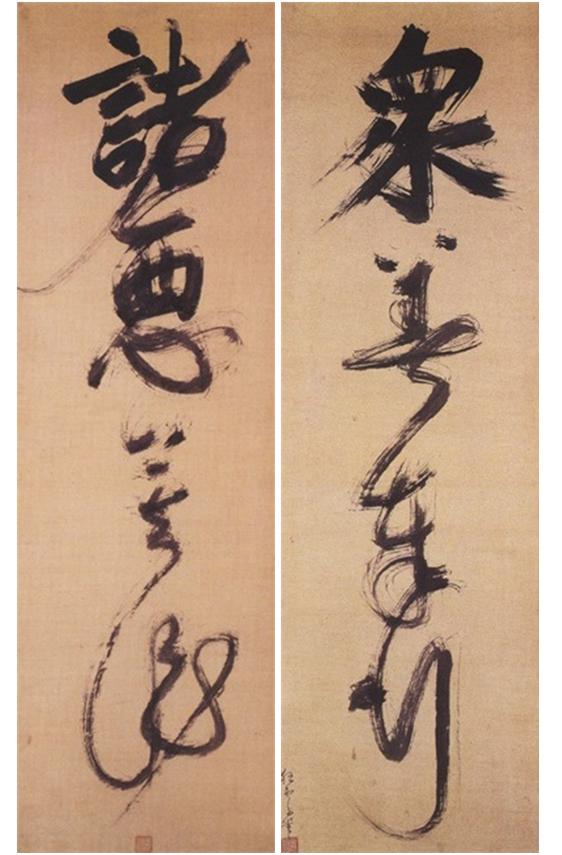 諸悪莫作
衆善奉行